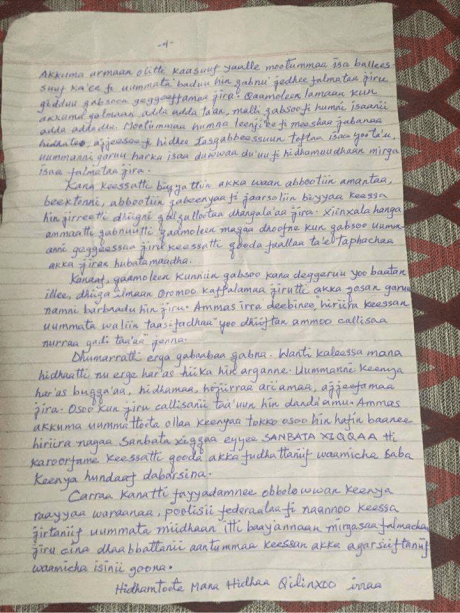 -4-
Akkuma armaan olitti kaasuuf yaalle mootummaa isa balleessuuf ka'ee fi uummata baduu hin qabnu jedhee falmataa jiru
gidduu qabsoon geggeeffamaa jira. Qaamoleen lamaan kun
akkuma galmaan adda adda ta'an, malli qabsoo fi humni isaanii
adda addadha. Mootummaan humna leenji'ee fi meeshaa qabaa
hidhatee, ajjeesee fi hidhee dasgabbeessuun toftaa isaa yoo ta'u,
uummanni garuu harka isaa duwwaa du'uu fi hidhamuudhaan mirga
isaa falmataa jira.
Kana keessatti biyyattiin akka waan abbootiin amantaa,
beektonni, abbootiin qabeenyaa fi jaarsoliin biyyaa keessa
hin jirreetti dhiigni dhangala'aa jira. Xiinxala hanga
ammaatti qabnuutti qaamoleen maqaa dhoofne kun qabsoo uumm-
anni geggeessaa jiru keessatti gooda faallaa ta'e taphachaa
akka jiran hubatamuudha.
Kanaaf, qaamoleen kunniin qabsoo kana deggeruu yoo baatan
illee, dhiiga ilmaan Oromoo kaffalamaa jirutti akka qosan garuu
namni barbaadu hin jiru. Ammas irra deebinee, hiriira keessan
uummata waliin taasifadhaa yoo dhiiftan ammoo callisaa
nurraa gadi taa'aa jenna.
Dhumarratti erga qabaabaa qabna. Wanti kaleessa mana
hidhaatti nu erge har'as hiika hin arganne. Uummanni keenya
har'as buqqa'aa, hidhamaa, hojiirraa ari'amaa, ajjeefamaa
jira. Osoo kun jiru callisanii taa'uun hin danda'amu. Ammas
akkuma uummattoota ollaa keenyaa tokko osoo hin hafin baanee
hiriira nagaa Sanbata xiqqaa eyyee SANBATA XIQQAA tti
karoorfame keessatti gooda akka fudhattaniif waamicha Saba
Keenya hundaaf dabarsina.
Carraa kanatti fayyadamnee obbolowwan keenya
raayyaa waraanaa, poolisii federaalaa fi naannoo keessa
jirtaniif uummata miidhaan itti baayannaan mirgasaa falmachaa
jiru cina dhaabbattanii aantummaa keessan akka agarsiiftaniif
waamicha isinii goona.
Hidhamtoota Mana Hidhaa Qilinxoo irraa